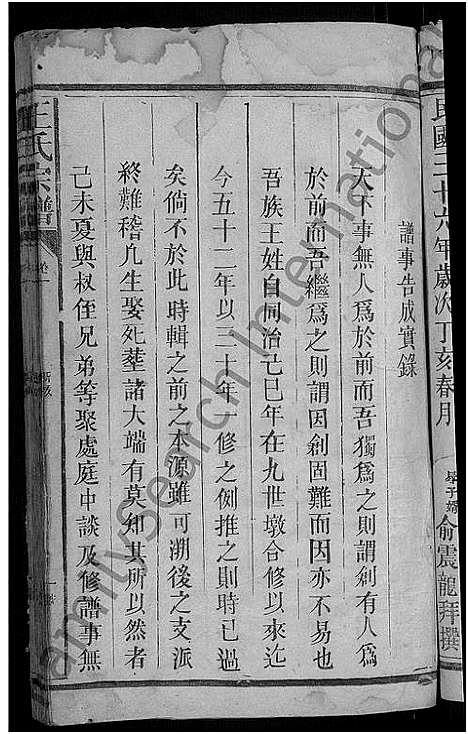 民國三十六年歲次丁亥春月
俞震龍拜撰
譜事告成實錄
天下事無人爲於前而吾獨爲之則謂創有人爲
於前而吾繼爲之則謂因創固難而因亦不易也
吾族王姓自同治己巳年在九世墩合修以來迄
今五十二年以三十年一修之例推之則時已過
矣倘不於此時輯之前之本源雖可溯後之支派
終難稽凢生娶死塟諸大端有莫知其所以然者
己未夏與叔侄兄弟等聚處庭中談及修譜事無
王氏宗譜